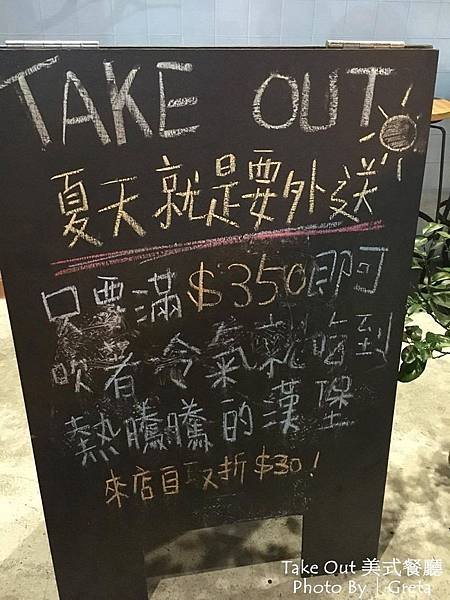 TAKE OUT
夏天就是要外送
只要滿$350即可
吹著冷氣就吃到
熱騰騰的漢堡
來店自取折$30!
Take Out 美式餐廳
Photo By | Greta